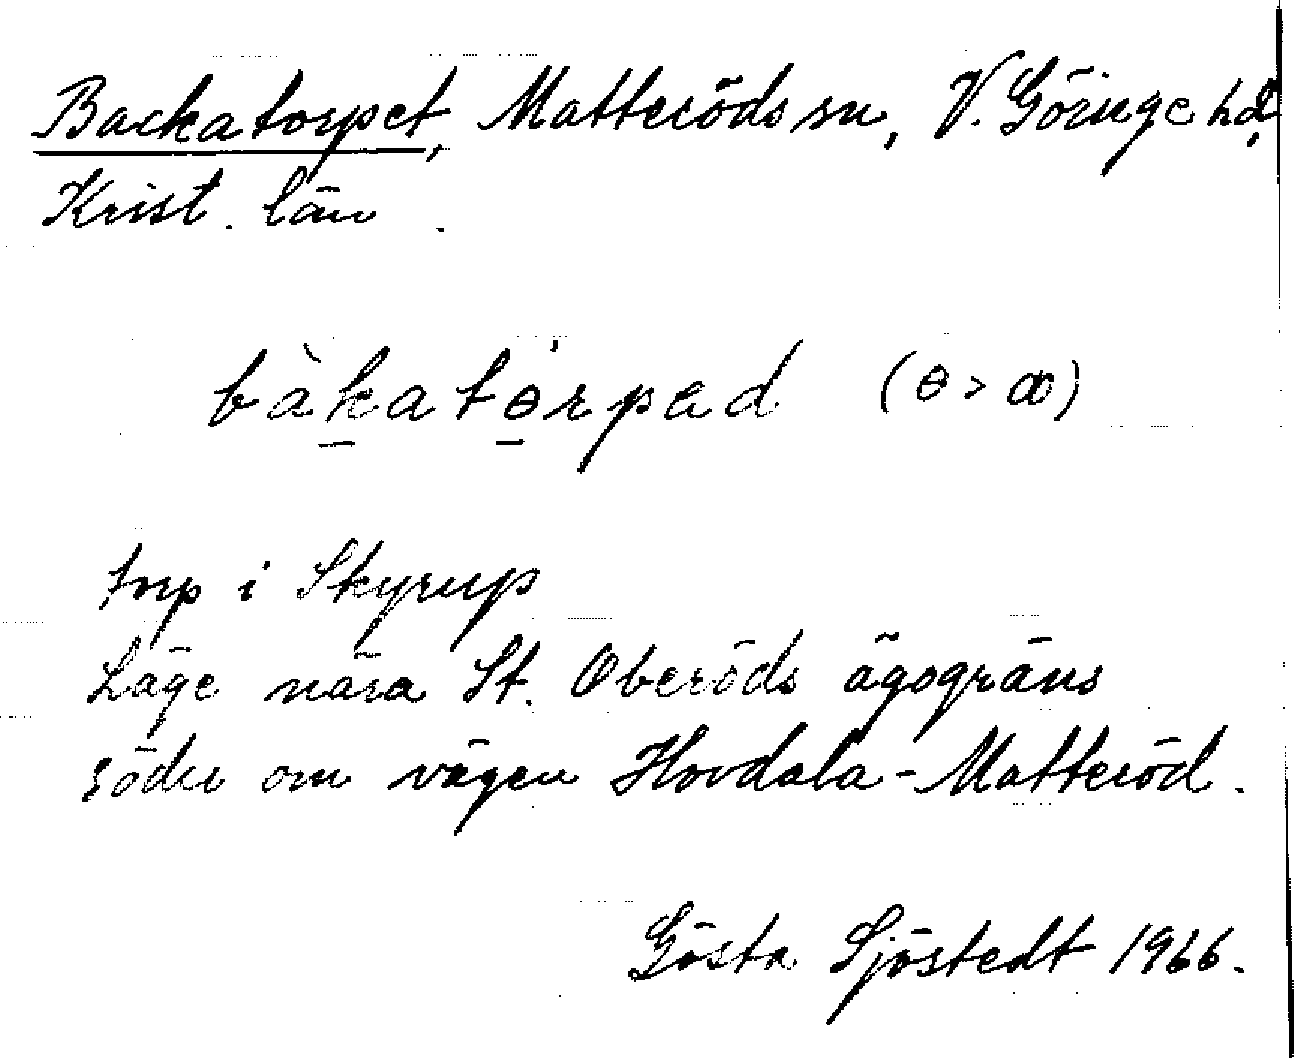 Backatorpet, Matteröds sn, V. Göinge hd,
Krist. län.
bàk̲atɵ̲́rpad (ɵ > ꝏ)
torp i Skyrup
Läge nära St. Oberöds ägogräns
söder om vägen Hovdala-Matteröd.
Gösta Sjöstedt 1966.